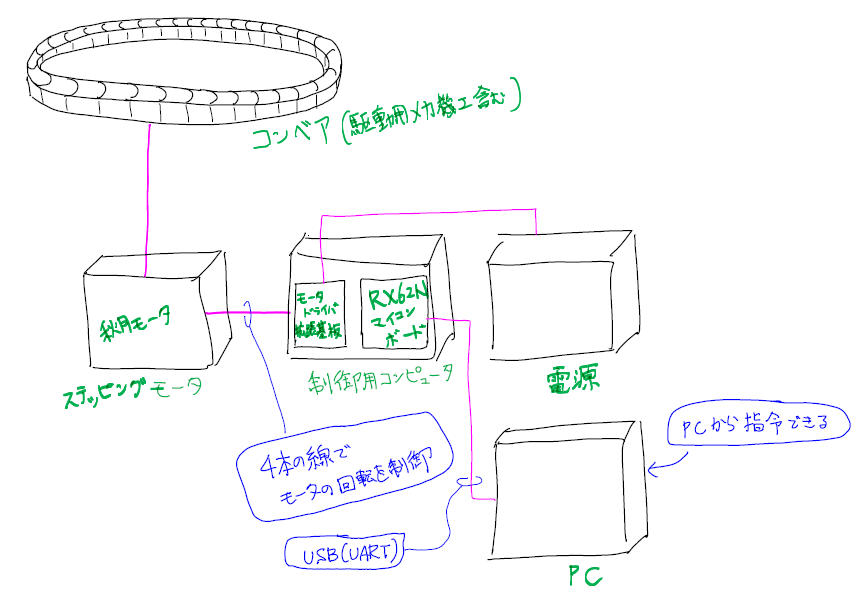 コンベア(駆動用メカ機工含む)
秋月モータ
ステッピングモータ
モータ
ドライバ
拡張基板
RX62N
マイコン
ボード
制御用コンピュータ
電源
4本の線で
モータの回転を制御
PCから指令できる
USB(UART)
PC